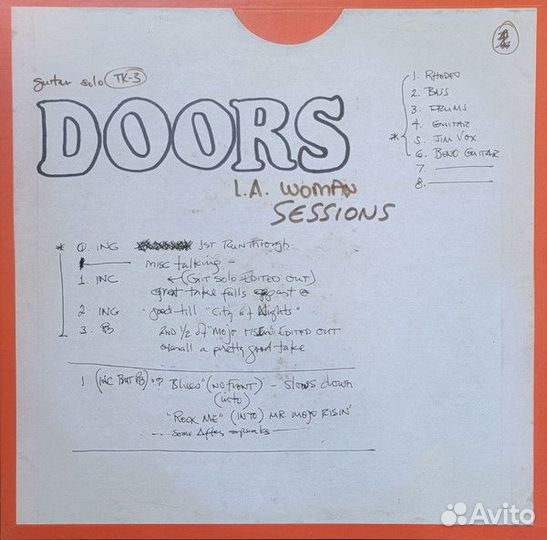 guitar solo TK-3
DOORS
L.A. WOMAN
SESSIONS
1. RHODES
2. BASS
3. DRUMS
4. GUITAR
* 5. JIM VOX
6. BEND GUITAR
7.
8.
* 0 INC 1ST RUN through
misc talking -
1. INC ← (GIT SOLO EDITED OUT)
great take falls apart @
2 INC good till "City of Nights"
3. PB 2ND 1/2 of "Mojo RISIN EDITED OUT
overall a pretty good take
1 (INC BUT PB) ? Blues" (NO FRONT) - Slows down
(INTO)
"ROCK ME" (INTO) MR MOJO RISIN'
Some After
Avito